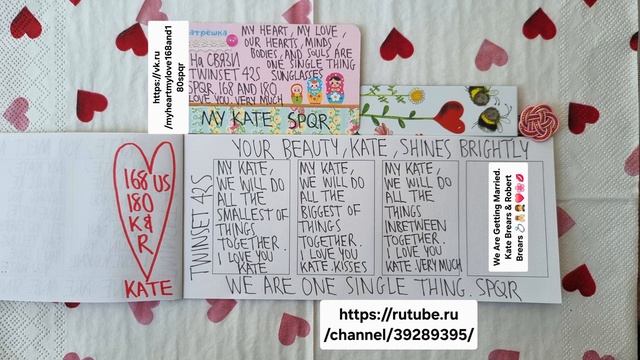 https://vk.ru
/myheartmylove168and1
80spqr
атрешка
MY HEART, MY LOVE,
OUR HEARTS, MINDS,
BODIES, AND SOULS ARE
ONE SINGLE THING
На СВЯЗИ
TWINSET 42S SUNGLASSES
SPQR 168 AND 180
LOVE YOU VERY MUCH
MY KATE SPQR
YOUR BEAUTY, KATE, SHINES BRIGHTLY
168 US
180
K &
R
KATE
TWINSET 42S
MY KATE,
WE WILL DO
ALL THE
SMALLEST OF
THINGS
TOGETHER.
I LOVE YOU
KATE
MY KATE,
WE WILL DO
ALL THE
BIGGEST OF
THINGS
TOGETHER.
I LOVE YOU
KATE. KISSES
MY KATE,
WE WILL DO
ALL THE
THINGS
INBETWEEN
TOGETHER.
I LOVE YOU
KATE. VERY MUCH
We Are Getting Married.
Kate Brears & Robert
Brears
WE ARE ONE SINGLE THING. SPQR
https://rutube.ru
/channel/39289395/